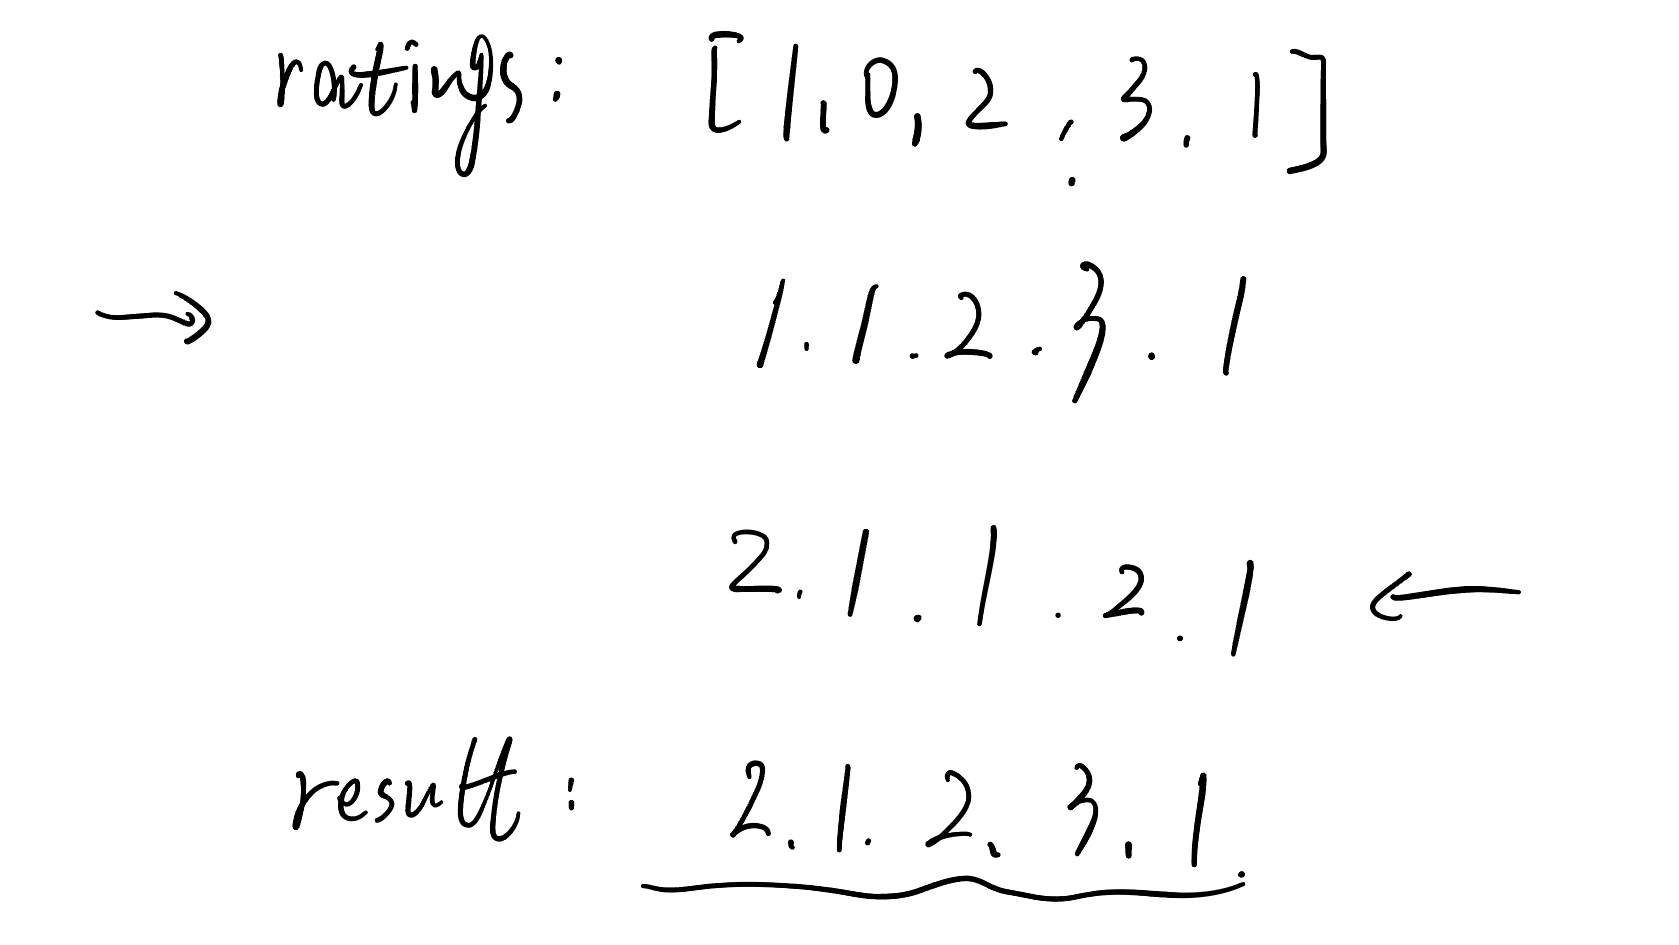 ratings: [1,0,2,3,1]
→ 1.1.2.3.1
2.1.1.2.1 ←
result: 2.1.2.3.1.